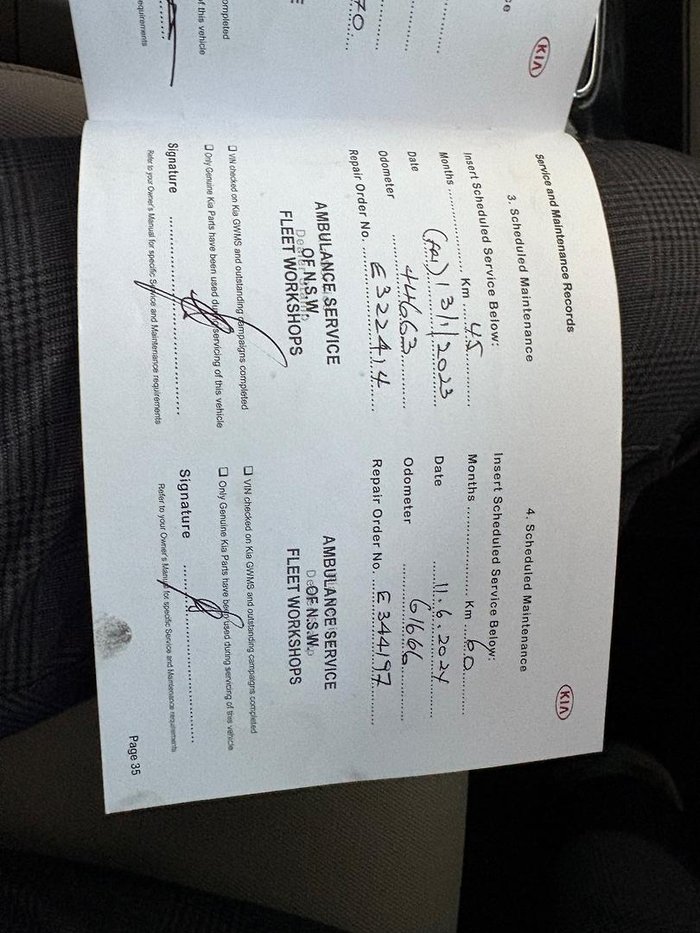 KIA
70
ompleted
of this vehicle
equirements
Service and Maintenance Records
KIA
3. Scheduled Maintenance
Insert Scheduled Service Below:
Months .................... Km .... 45 ............
Date (FRI) 13/1/2023
Odometer 44663
Repair Order No. E322414
AMBULANCE SERVICE
OF N.S.W.
FLEET WORKSHOPS
☐ VIN checked on Kia GWMS and outstanding campaigns completed
☐ Only Genuine Kia Parts have been used during servicing of this vehicle
Signature ..................................
Refer to your Owner's Manual for specific Service and Maintenance requirements
4. Scheduled Maintenance
Insert Scheduled Service Below:
Months .................... Km .... 60 ............
Date 11.6.2024
Odometer 61666
Repair Order No. E344197
AMBULANCE SERVICE
OF N.S.W.
FLEET WORKSHOPS
☐ VIN checked on Kia GWMS and outstanding campaigns completed
☐ Only Genuine Kia Parts have been used during servicing of this vehicle
Signature ..................................
Refer to your Owner's Manual for specific Service and Maintenance requirements
Page 35